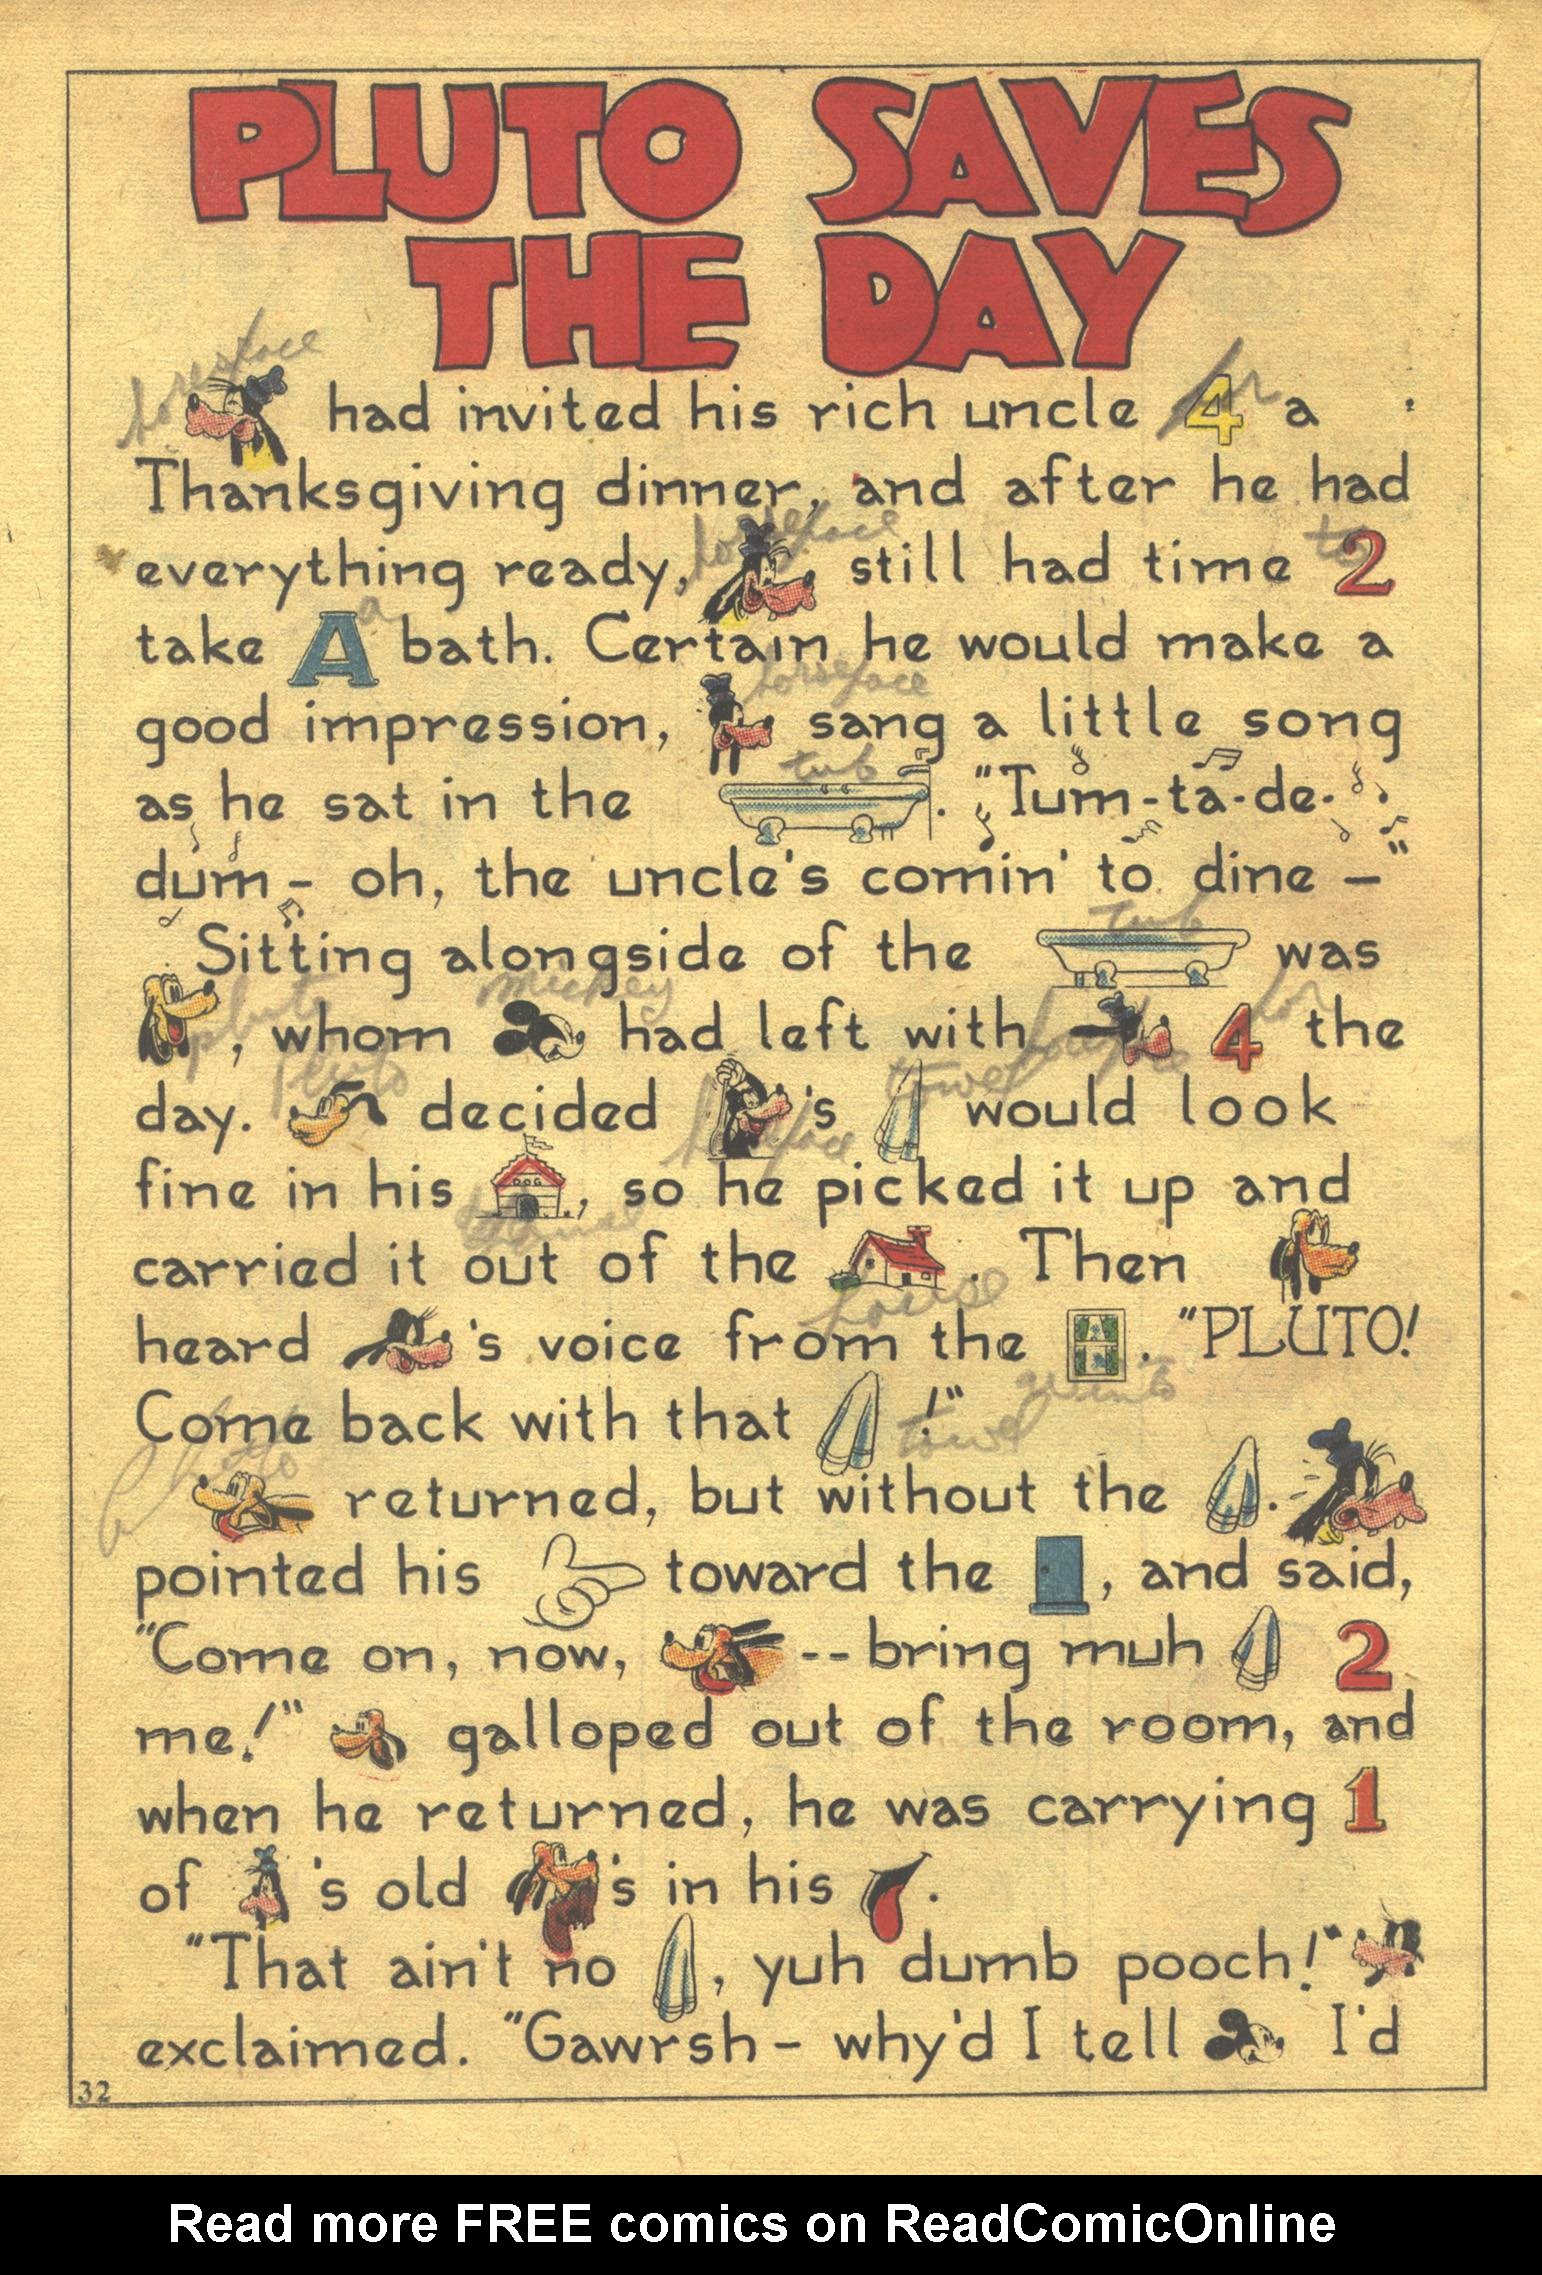 PLUTO SAVES
THE DAY
horseface had invited his rich uncle 4 for a
Thanksgiving dinner, and after he had
everything ready, horseface still had time to 2
take A a bath. Certain he would make a
good impression, horseface sang a little song
as he sat in the tub. "Tum-ta-de-
dum - oh, the uncle's comin' to dine -"
Sitting alongside of the tub was
pluto, whom mickey had left with 4 for the
day. pluto decided horseface's towel would look
fine in his DOG, so he picked it up and
carried it out of the house. Then
heard 's voice from the. "PLUTO!
Come back with that towel!"
Pluto returned, but without the.
pointed his toward the, and said,
"Come on, now, -- bring muh 2
me!" galloped out of the room, and
when he returned, he was carrying 1
of 's old 's in his.
"That ain't no, yuh dumb pooch!"
exclaimed. "Gawrsh - why'd I tell I'd
32
Read more FREE comics on ReadComicOnline